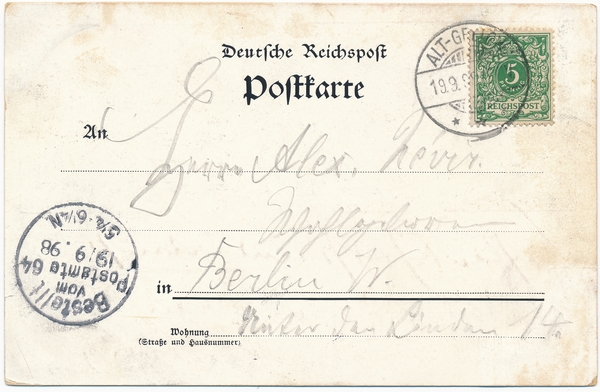 Deutsche Reichspost
Postkarte
ALT-GE
19.9.9
5
REICHSPOST
An
Herrn Alex.
in Berlin W.
Wohnung
(Straße und Hausnummer)
Unter den Linden
Bestellt
vom
Postamte 64
19/9.98
5½-6¼N